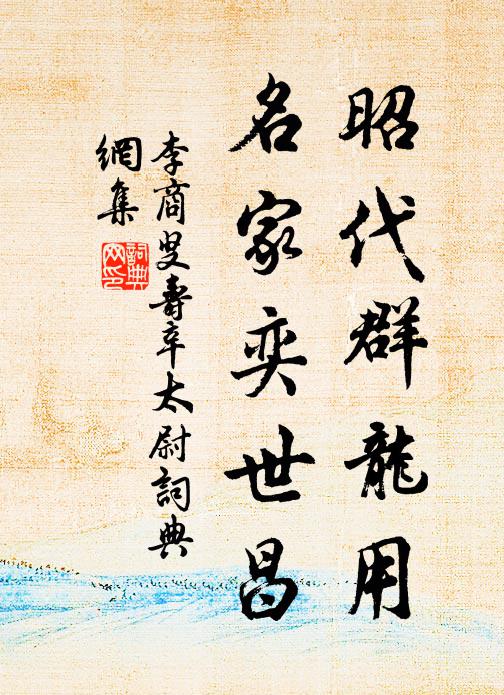 昭代群龍用
名家奕世昌
李商叟壽辛太尉詞典
網集
詞典網印